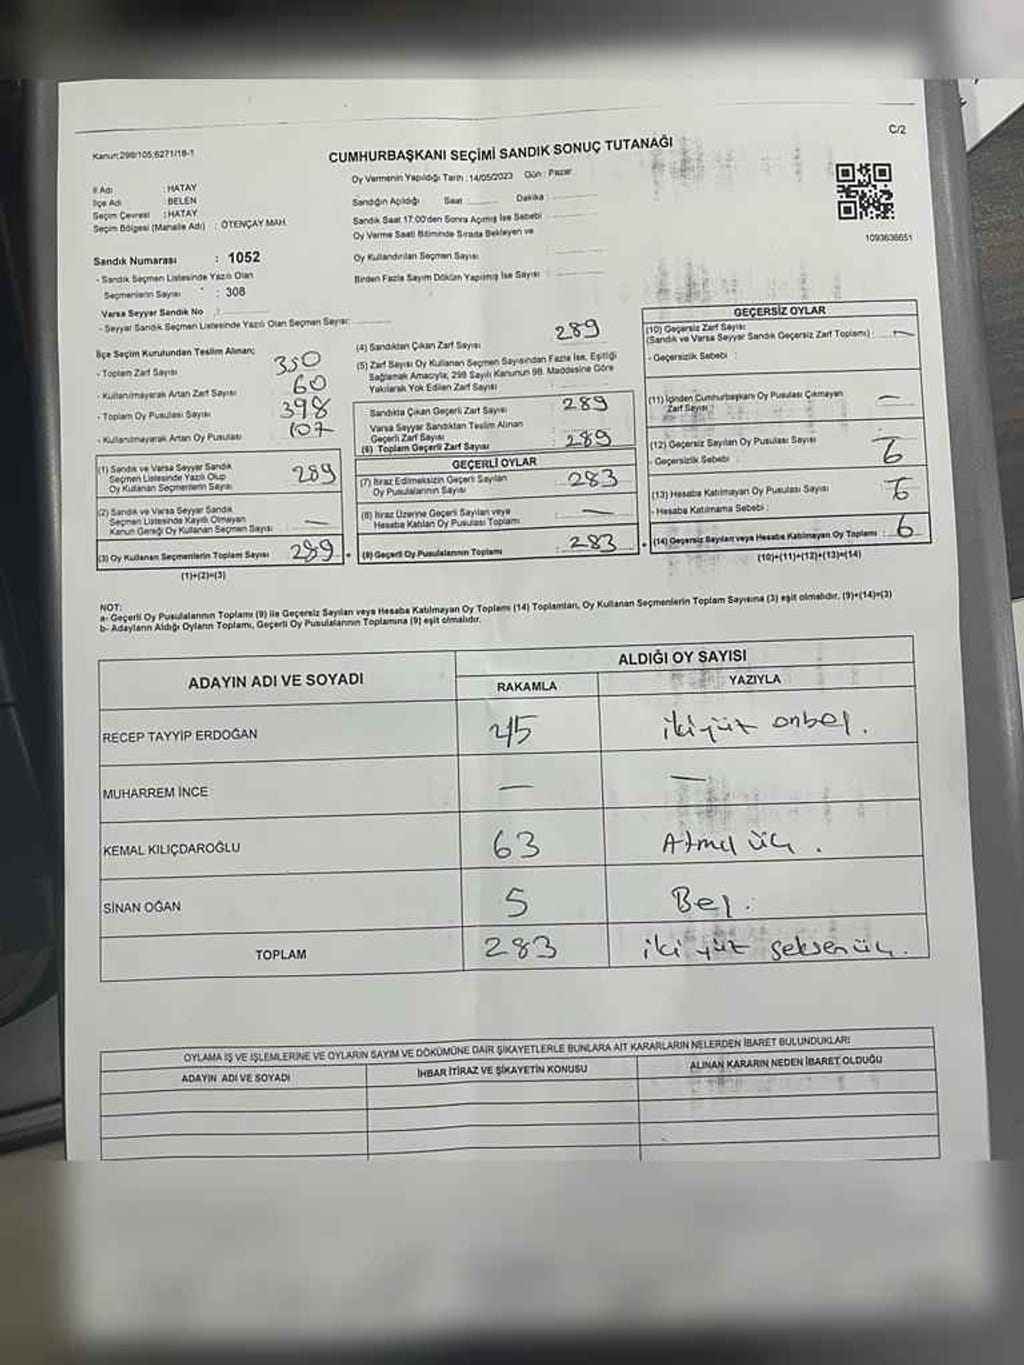 C/2
Kanun:298/105;6271/18-1
CUMHURBAŞKANI SEÇİMİ SANDIK SONUÇ TUTANAĞI
Oy Vermenin Yapıldığı Tarih : 14/05/2023 Gün : Pazar
İl Adı : HATAY
İlçe Adı : BELEN
Seçim Çevresi : HATAY
Seçim Bölgesi (Mahalle Adı) : ÖTENÇAY MAH.
Sandığın Açıldığı Saat : Dakika :
Sandık Saat 17:00'den Sonra Açılmış İse Sebebi :
Oy Verme Saati Bitiminde Sırada Bekleyen ve
Oy Kullandırılan Seçmen Sayısı :
Birden Fazla Sayım Döküm Yapılmış İse Sayısı :
1093636651
Sandık Numarası : 1052
- Sandık Seçmen Listesinde Yazılı Olan
Seçmenlerin Sayısı : 308
Varsa Seyyar Sandık No :
- Seyyar Sandık Seçmen Listesinde Yazılı Olan Seçmen Sayısı:
İlçe Seçim Kurulundan Teslim Alınan;
- Toplam Zarf Sayısı 350
- Kullanılmayarak Artan Zarf Sayısı 60
- Toplam Oy Pusulası Sayısı 398
- Kullanılmayarak Artan Oy Pusulası 107
(1) Sandık ve Varsa Seyyar Sandık
Seçmen Listesinde Yazılı Olup
Oy Kullanan Seçmenlerin Sayısı 289
(2) Sandık ve Varsa Seyyar Sandık
Seçmen Listesinde Kayıtlı Olmayan
Kanun Gereği Oy Kullanan Seçmen Sayısı : —
(3) Oy Kullanan Seçmenlerin Toplam Sayısı 289
(1)+(2)=(3)
(4) Sandıktan Çıkan Zarf Sayısı 289
(5) Zarf Sayısı Oy Kullanan Seçmen Sayısından Fazla İse, Eşitliği
Sağlamak Amacıyla; 298 Sayılı Kanunun 98. Maddesine Göre
Yakılarak Yok Edilen Zarf Sayısı :
Sandıkta Çıkan Geçerli Zarf Sayısı : 289
Varsa Seyyar Sandıktan Teslim Alınan
Geçerli Zarf Sayısı
(6) Toplam Geçerli Zarf Sayısı : 289
GEÇERLİ OYLAR
(7) İtiraz Edilmeksizin Geçerli Sayılan
Oy Pusulalarının Sayısı : 283
(8) İtiraz Üzerine Geçerli Sayılan veya
Hesaba Katılan Oy Pusulası Toplamı : —
(9) Geçerli Oy Pusulalarının Toplamı : 283
GEÇERSİZ OYLAR
(10) Geçersiz Zarf Sayısı
(Sandık ve Varsa Seyyar Sandık Geçersiz Zarf Toplamı) : —
- Geçersizlik Sebebi :
(11) İçinden Cumhurbaşkanı Oy Pusulası Çıkmayan
Zarf Sayısı : —
(12) Geçersiz Sayılan Oy Pusulası Sayısı 6
- Geçersizlik Sebebi :
(13) Hesaba Katılmayan Oy Pusulası Sayısı
- Hesaba Katılmama Sebebi :
(14) Geçersiz Sayılan veya Hesaba Katılmayan Oy Toplamı : 6
(10)+(11)+(12)+(13)=(14)
NOT:
a- Geçerli Oy Pusulalarının Toplamı (9) ile Geçersiz Sayılan veya Hesaba Katılmayan Oy Toplamı (14) Toplamları, Oy Kullanan Seçmenlerin Toplam Sayısına (3) eşit olmalıdır. (9)+(14)=(3)
b- Adayların Aldığı Oyların Toplamı, Geçerli Oy Pusulalarının Toplamına (9) eşit olmalıdır.
ADAYIN ADI VE SOYADI ALDIĞI OY SAYISI
RAKAMLA YAZIYLA
RECEP TAYYİP ERDOĞAN 215 ikiyüz onbeş.
MUHARREM İNCE — —
KEMAL KILIÇDAROĞLU 63 Atmış üç.
SİNAN OĞAN 5 Beş.
TOPLAM 283 iki yüz seksenüç.
OYLAMA İŞ VE İŞLEMLERİNE VE OYLARIN SAYIM VE DÖKÜMÜNE DAİR ŞİKAYETLERLE BUNLARA AİT KARARLARIN NELERDEN İBARET BULUNDUKLARI
ADAYIN ADI VE SOYADI İHBAR İTİRAZ VE ŞİKAYETİN KONUSU ALINAN KARARIN NEDEN İBARET OLDUĞU